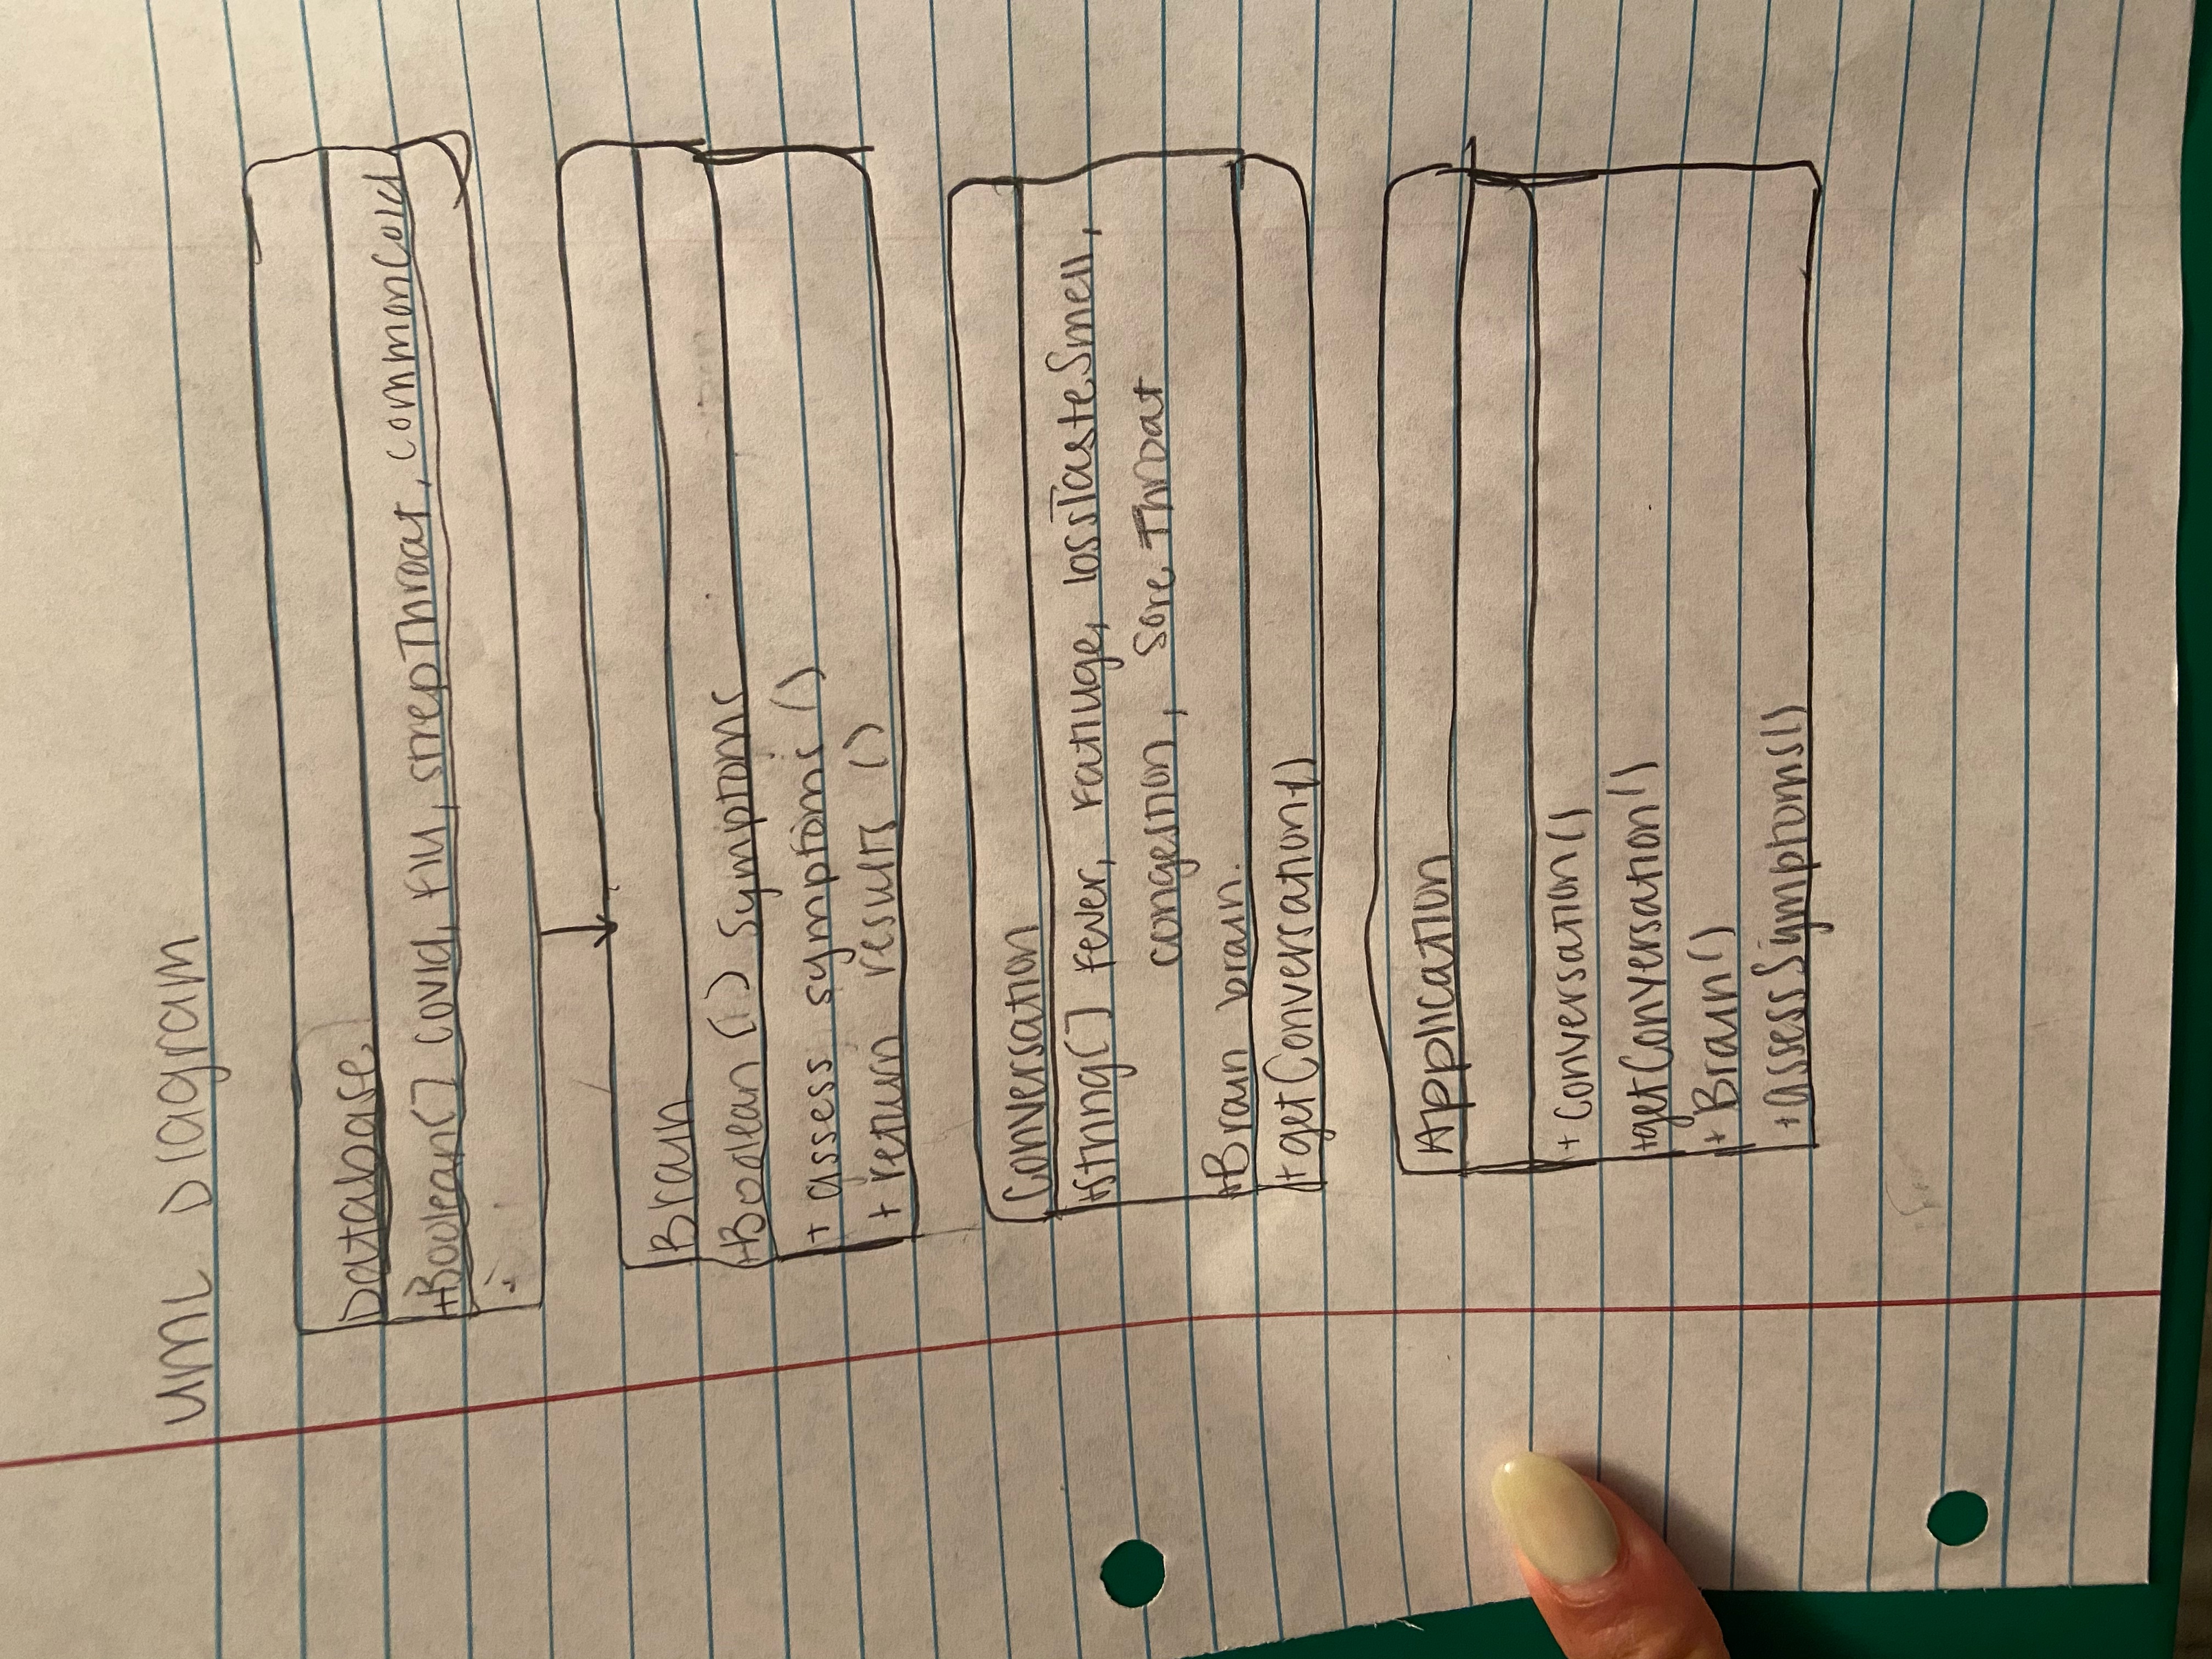 UML Diagram
Database
+Boolean[] covid, flu, strepThroat, commonCold
Brain
+Boolean [] symptoms
+ assess symptoms ()
+ return results ()
Conversation
+String[] fever, fatiuge, lossTasteSmell,
congestion, sore Throat
+Brain brain.
+ getConversation()
Application
+ Conversation()
+getConversation()
+ Brain()
+assessSymptoms()